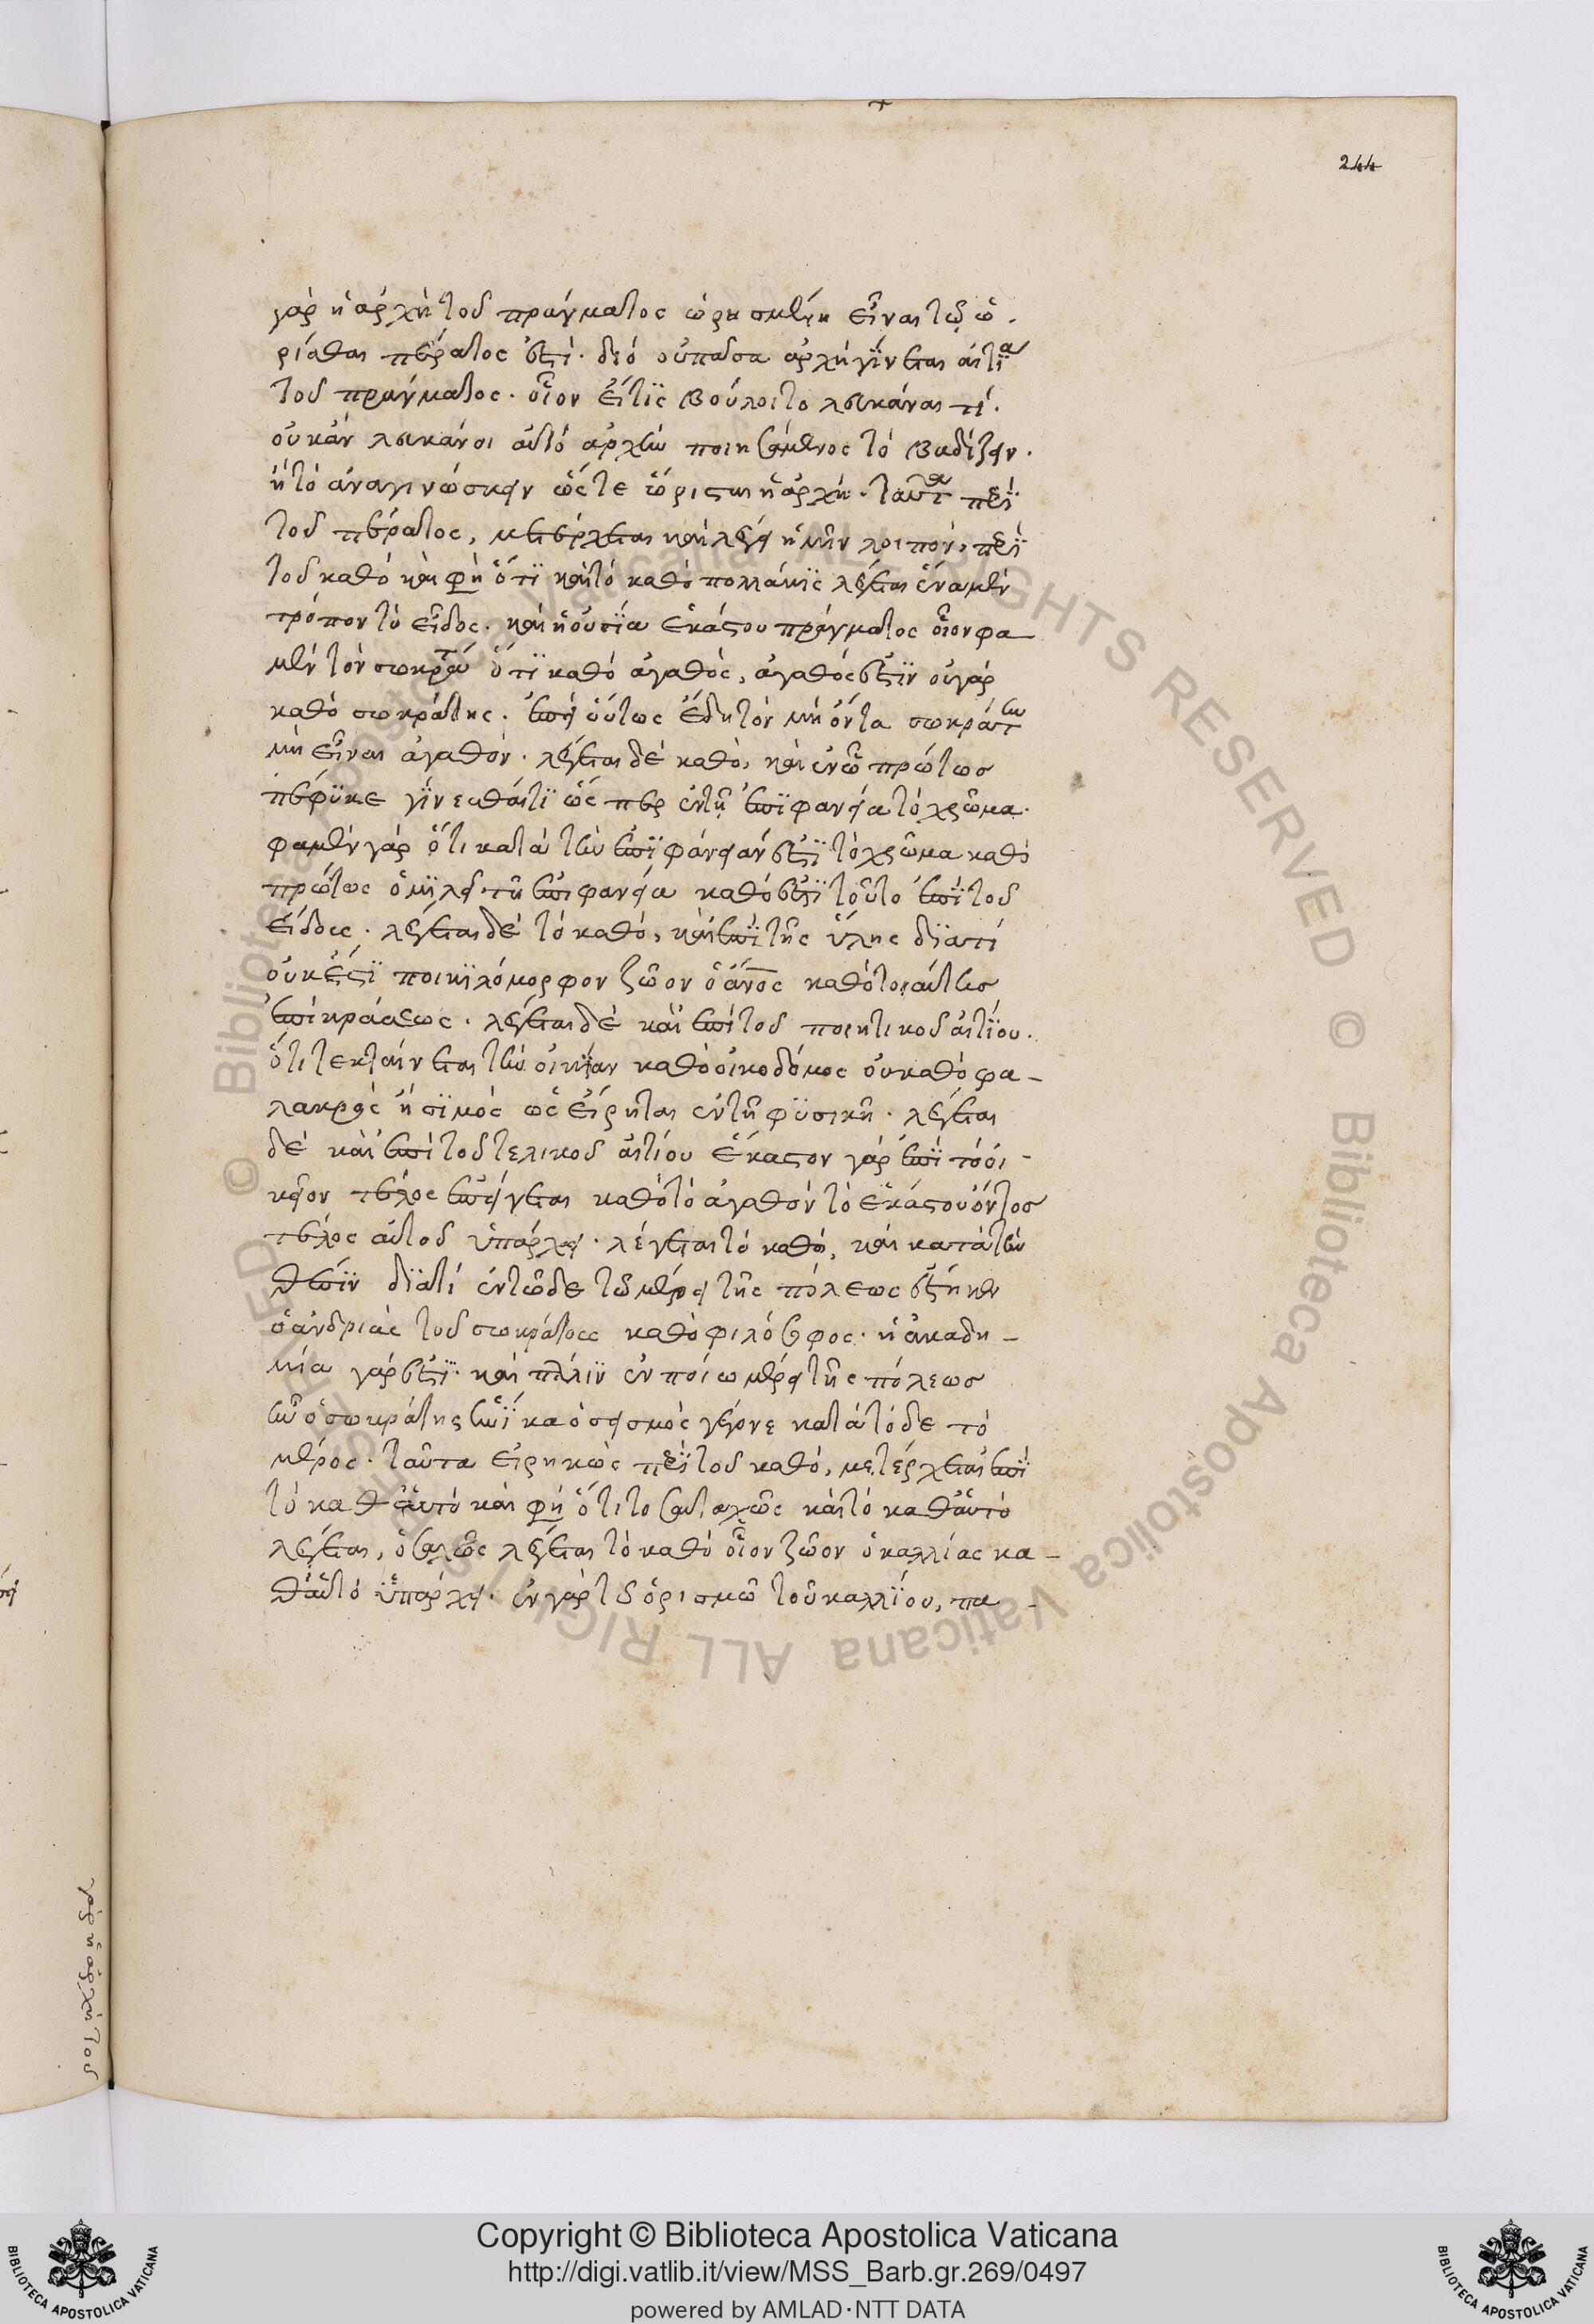 244
γὰρ ἡ ἀρχὴ τοῦ πράγματος ὡρισμένη εἶναι τῷ ὡ.
ρίσθαι πέρατος ἐστί. διό οὐ πᾶσα ἀρχὴ γίνεται αἰτία
τοῦ πράγματος. οἷον εἴ τις βούλοιτο λευκάναι τί.
οὐκ ἄν λευκάνοι αὐτό ἀρχὴν ποιησάμενος τὸ βαδίζειν.
ἢ τὸ ἀναγινώσκειν ὥς τε ὥρισται ἡ ἀρχή. ταῦτα περὶ
τοῦ πέρατος, μετέρχεται καὶ λέγει ἡμῖν λοιπόν, περὶ
τοῦ καθό καὶ φὴ ὅτι καὶ τὸ καθὸ πολλάκις λέγεται ἕνα μὲν
τρόπον τὸ εἶδος. καὶ ἡ οὐσία ἑκάστου πράγματος οἷον φα
μὲν τὸν σωκράτην ὅτι καθό ἀγαθὸς, ἀγαθός ἐστιν οὐ γὰρ
καθὸ σωκράτης. ἐπεὶ οὕτως ἔδει τὸν μὴ ὄντα σωκράτην
μὴ εἶναι ἀγαθὸν. λέγεται δὲ καθὸ, καὶ ἐν ᾧ πρώτως
πέφυκε γίνεσθαί τι ὥς περ ἐν τῇ ἐπιφανεία τὸ χρῶμα.
φαμὲν γὰρ ὅτι κατὰ τὴν ἐπιφάνειάν ἐστι τὸ χρῶμα καθὸ
πρώτως ὁμιλεῖ τῇ ἐπιφανεία καθό ἐστι τοῦτο ἐπὶ τοῦ
εἴδους. λέγεται δὲ τὸ καθό, καὶ ἐπὶ τῆς ὕλης διατί
οὐκ ἔστι ποικιλόμορφον ζῶον ὁ ἄνος καθὸ τοιαύτης
ἐπὶ κράσεως. λέγεται δὲ καὶ ἐπὶ τοῦ ποιητικοῦ αἰτίου.
ὅτι τεκταίνεται τὴν οἰκίαν καθὸ οἰκοδόμος οὐ καθὸ φα-
λακρὸς ἢ σιμὸς ὡς εἴρηται ἐν τῇ φυσικῇ. λέγεται
δὲ καὶ ἐπὶ τοῦ τελικοῦ αἰτίου ἕκαστον γὰρ ἐπὶ τό οἰ-
κεῖον τέλος ἐπείγεται καθὸ τὸ ἀγαθόν τὸ ἑκάστου ὄντος
τέλος αὐτοῦ ὑπάρχει. λέγεται τὸ καθό, καὶ κατὰ τὴν
θέσιν διατί ἐν τῶδε τῶ μέρει τῆς πόλεως ἔστηκεν
ὁ ἀνδριὰς τοῦ σωκράτους καθὸ φιλόσοφος. ἡ ἀκαδη-
μία γὰρ ἐστι. καὶ πάλιν ἐν ποίω μέρει τῆς πόλεως
ἦν ὁ σωκράτης ἡνίκα ὁ σεισμὸς γέγονε κατὰ τόδε τὸ
μέρος. ταῦτα εἰρηκὼς περὶ τοῦ καθό, μετέρχεται ἐπὶ
τὸ καθ αὑτὸ καὶ φὴ ὅτι τοσαυταχῶς καὶ τὸ καθαὑτὸ
λέγεται, ὁσαχῶς λέγεται τὸ καθὸ οἷον ζῶον ὁ καλλίας κα-
θαὑτό ὑπάρχει. ἐν γὰρ τῶ ὁρισμῶ τοῦ καλλίου, πα-
γὰρ ἡ ἀρχὴ τοῦ
Copyright © Biblioteca Apostolica Vaticana
http://digi.vatlib.it/view/MSS_Barb.gr.269/0497
powered by AMLAD·NTT DATA
BIBLIOTECA APOSTOLICA VATICANA
BIBLIOTECA APOSTOLICA VATICANA
© Biblioteca Apostolica Vaticana ALL RIGHTS RESERVED © Biblioteca Apostolica Vaticana ALL RIGHTS RESERVED